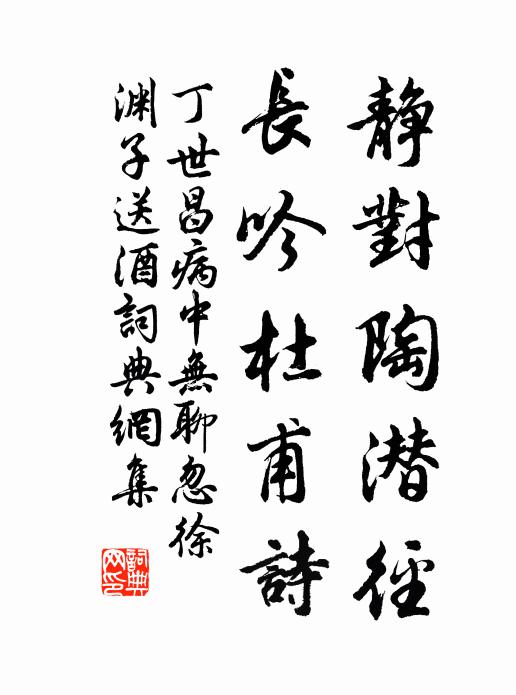 靜對陶潜徑
長吟杜甫詩
丁世昌病中無聊忽徐
渊子送酒詞典網集
詞典
网印